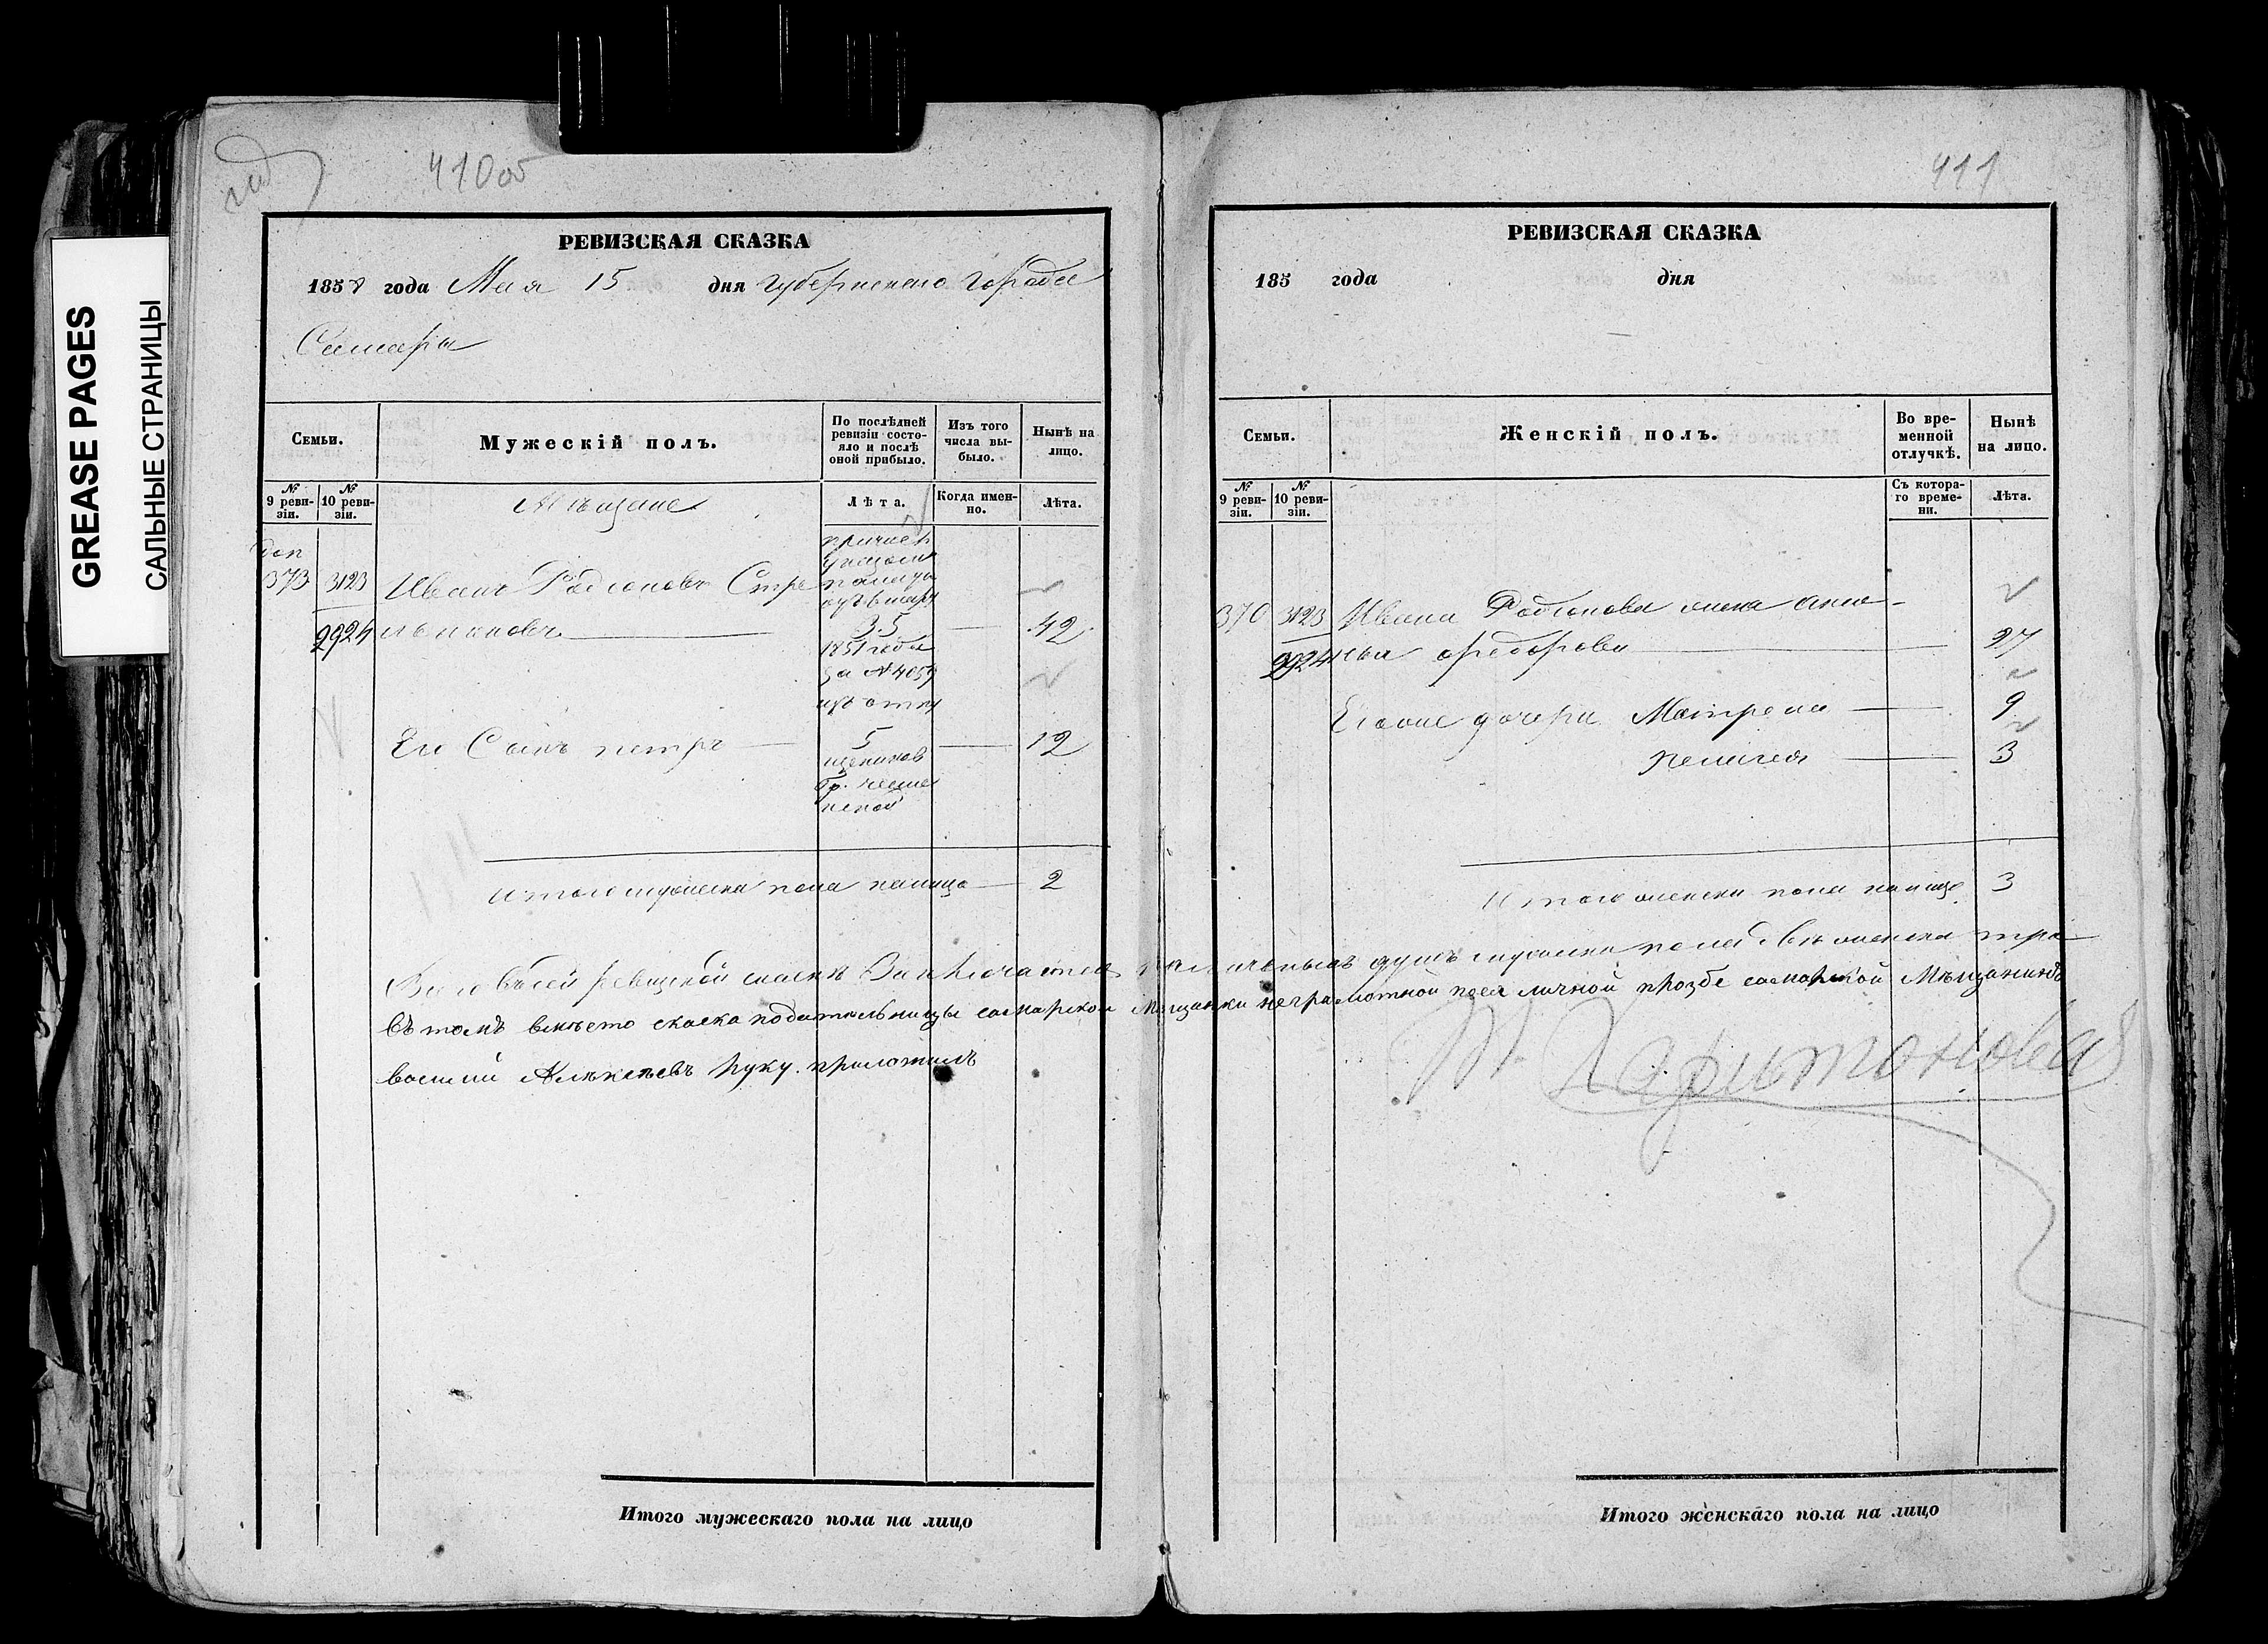 GREASE PAGES
САЛЬНЫЕ СТРАНИЦЫ
410об
РЕВИЗСКАЯ СКАЗКА
1858 года Мая 15 дня губернскаго города
Самары
Семьи.
Мужескій полъ.
По послѣдней ревизіи состояло и послѣ оной прибыло.
Изъ того числа выбыло.
Нынѣ на лицо.
№ 9 ревизіи.
№ 10 ревизіи.
Мѣщане
Лѣта.
Когда именно.
Лѣта.
доп
373 3123 Иванъ Родіоновъ Стре
2924 льниковъ 35 42
1851 года
за №4059
Его Сынъ петръ 5 12
Итого мужеска пола налицо 2
411
РЕВИЗСКАЯ СКАЗКА
185 года дня
Семьи.
Женскій полъ.
Во временной отлучкѣ.
Нынѣ на лицо.
№ 9 ревизіи.
№ 10 ревизіи.
Съ котораго времени.
Лѣта.
370 3123 Ивана Родіонова жена
2924 федорова 27
дочери Матрена 9
3
Итого женска пола налицо 3
Всего въ сей ревизской сказкѣ Заключается наличныхъ душъ мужеска пола двѣ женска три
Въ томъ вместо скаска подательницы самарской мещанки неграмотной поея личной прозбе самарской Мѣщанинъ
василий Алѣкеевъ руку приложилъ
Харитонова
Итого мужескаго пола на лицо
Итого женскаго пола на лицо